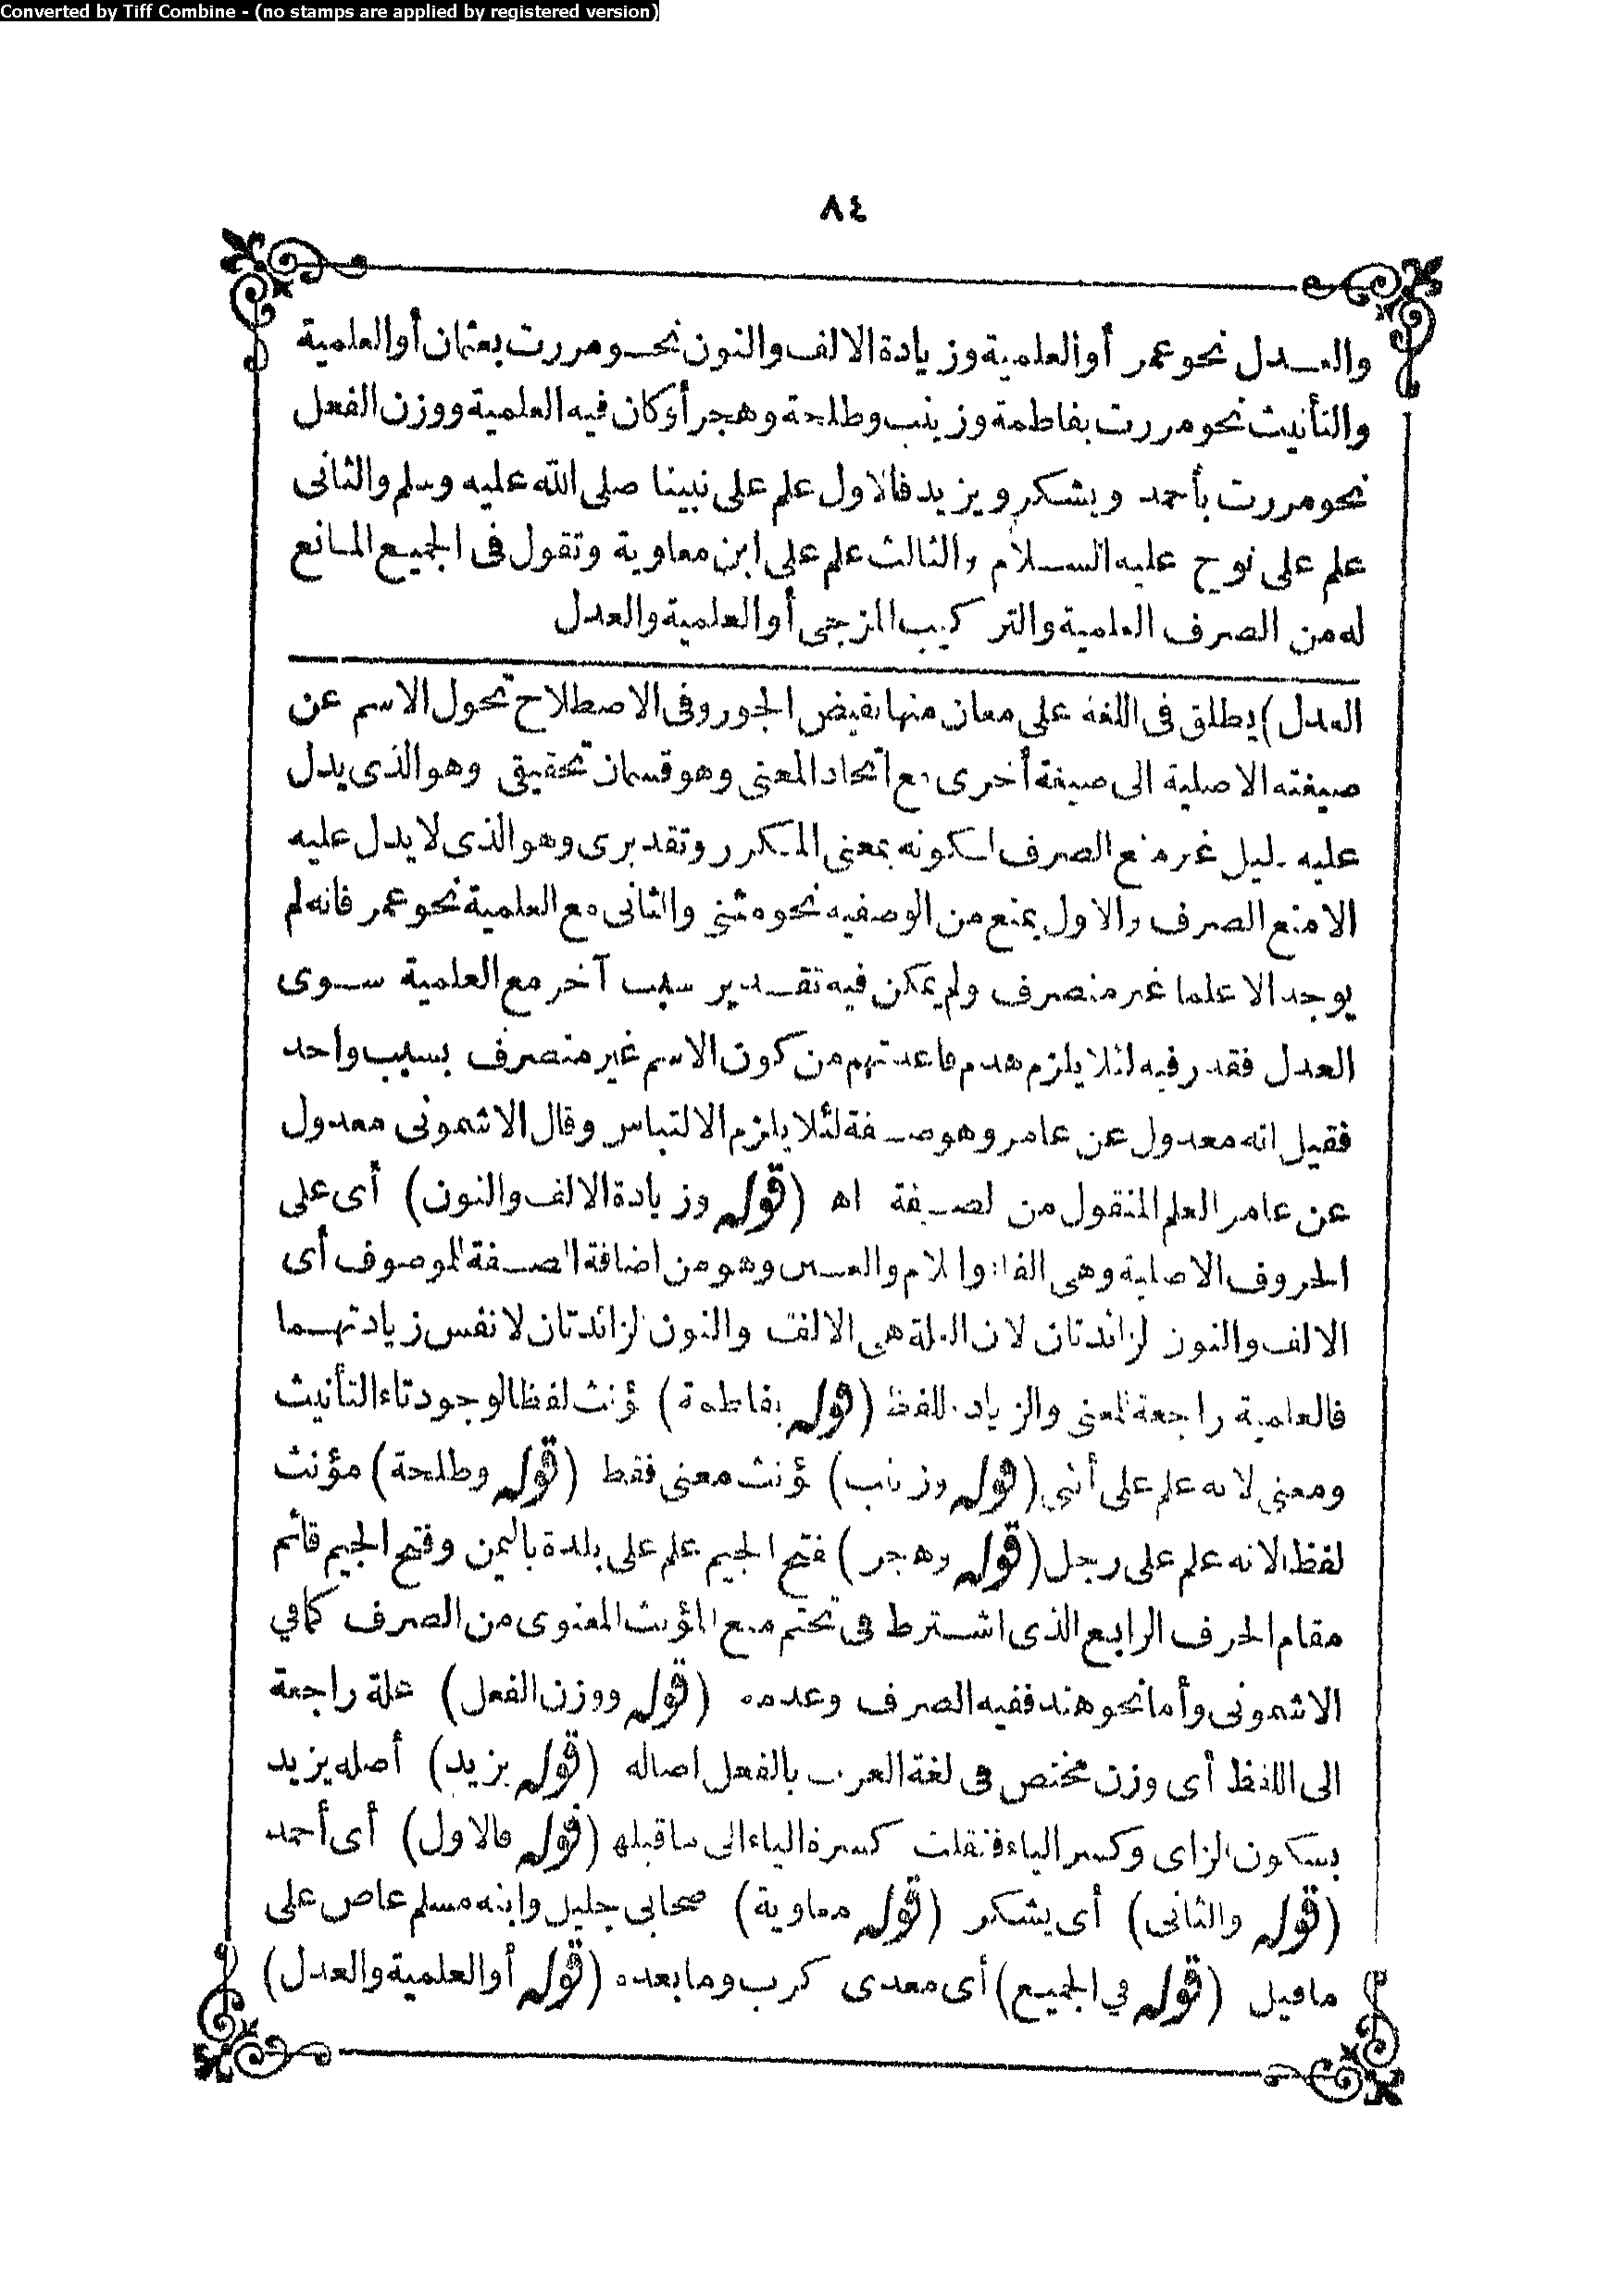 Converted by Tiff Combine - (no stamps are applied by registered version)
٨٤
والعدل نحو عمر أو العلمية وزيادة الالف والنون نحو مررت بعثمان أو العلمية
والتأنيث نحو مررت بفاطمة وزينب وطلحة وهجر أو كان فيه العلمية ووزن الفعل
نحو مررت بأحمد ويشكر ويزيد فالاول علم على نبينا صلى الله عليه وسلم والثانى
علم على نوح عليه السلام والثالث علم على ابن معاوية وتقول فى الجميع المانع
له من الصرف العلمية والتركيب المزجى أو العلمية والعدل
العدل) يطلق فى اللغة على معان منها نقيض الجور وفى الاصطلاح تحول الاسم عن
صيغته الاصلية الى صيغة أخرى مع اتحاد المعنى وهو قسمان تحقيقى وهو الذى يدل
عليه دليل غير منع الصرف لكونه بمعنى المكرر وتقديرى وهو الذى لا يدل عليه
الا منع الصرف والاول يمنع من الوصفيه نحو مثنى والثانى مع العلمية نحو عمر فانه لم
يوجد الا علما غير منصرف ولم يمكن فيه تقدير سبب آخر مع العلمية سوى
العدل فقدر فيه لئلا يلزم هدم قاعدتهم من كون الاسم غير منصرف بسبب واحد
فقيل انه معدول عن عامر وهو صفة لئلا يلزم الالتباس وقال الاشمونى معدول
عن عامر العلم المنقول من الصفة اه (قوله وزيادة الالف والنون) أى على
الحروف الاصلية وهى الفاء واللام والعين وهو من اضافة الصفة للموصوف أى
الالف والنون الزائدتان لان العلة هى الالف والنون الزائدتان لا نفس زيادتهما
فالعلمية راجعة للمعنى والزيادة للفظ (قوله بفاطمة) مؤنث لفظا لوجود تاء التأنيث
ومعنى لانه علم على أنثى (قوله وزينب) مؤنث معنى فقط (قوله وطلحة) مؤنث
لفظا لانه علم على رجل (قوله وهجر) بفتح الجيم علم على بلدة باليمن وفتح الجيم قائم
مقام الحرف الرابع الذى اشترط فى تحتم منع المؤنث المعنوى من الصرف كما في
الاشمونى وأما نحو هند ففيه الصرف وعدمه (قوله ووزن الفعل) علة راجعة
الى اللفظ أى وزن مختص فى لغة العرب بالفعل اصاله (قوله يزيد) أصله يزيد
بسكون الزاى وكسر الياء فنقلت كسرة الياء الى ما قبلها (قوله فالاول) أى أحمد
(قوله والثانى) أى يشكر (قوله معاوية) صحابى جليل وابنه مسلم عاص على
ما قيل (قوله في الجميع) أى معدى كرب وما بعده (قوله أو العلمية والعدل)